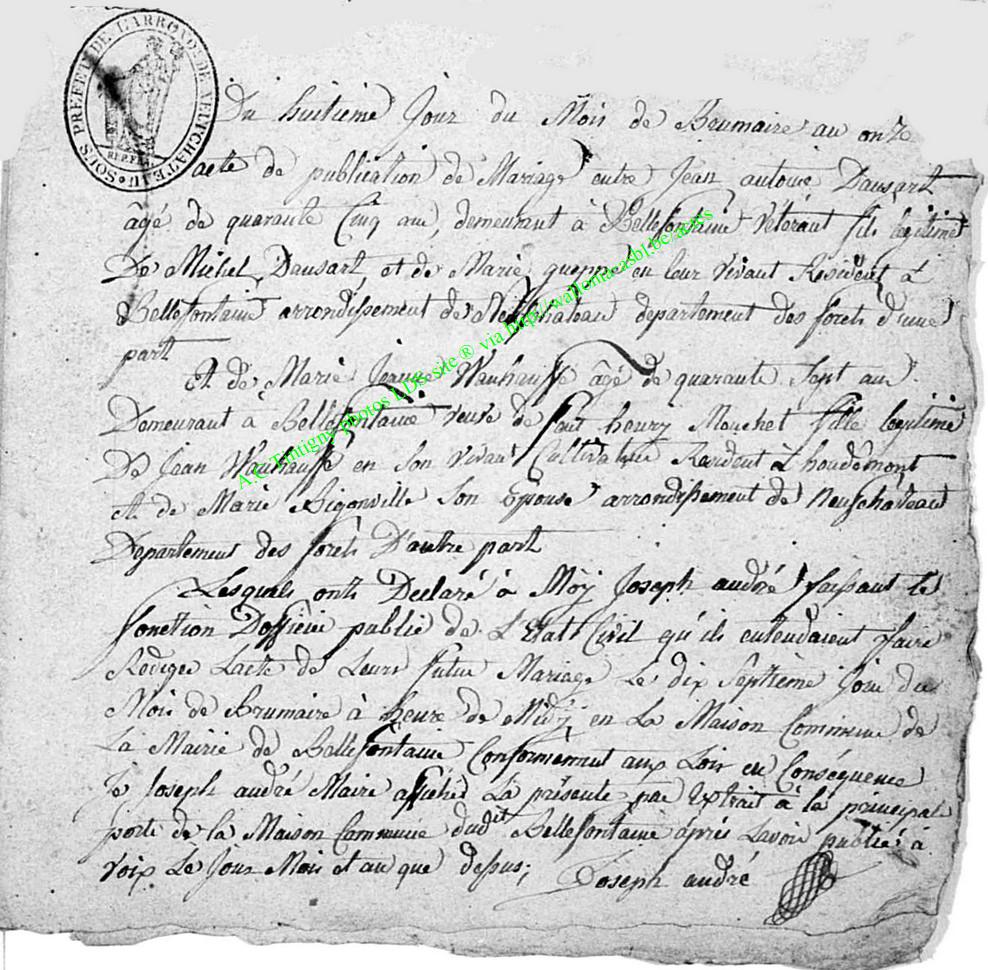 SOUS PREFET. DE L'ARROND.t DE NEUFCHATEAU
REP.FRA
Du huitieme Jour du Mois de Brumaire an onze
acte de publication de Mariage entre Jean antoine Dausart
âgé de quarante Cinq ans demeurant à Bellefontaine Vétérant fils legitime
De Michel Dausart et de Marie en leur vivant Resident à
Bellefontaine arrondissement de Neufchateau departement des forets d'une
part
Et de Marie Jeanne Wauhausse âgé de quarante Sept ans
Demeurant à Bellefontaine veuve de feut henry Mouchet fille legitime
De Jean Wauhausse en Son vivant Cultivateur Resident à houdemont
et de Marie Bigonville Son Epouse arrondissement de Neufchateau
Departement des forets D'autre part
Lesquels onts Declaré à Moÿ Joseph andré faissant le
fonction Dofficier public de L'Etat Civil qu'ils entendaient faire
Rediger Lacte de Leurs futur Mariage Le dix Septieme Jour du
Mois de Brumaire à heure de Midÿ en La Maison Commune de
La Mairie de Bellefontaine Conformement aux Loix en Conséquence
Je Joseph andré Maire affiches La présente par Extrait à la principal
porte de la Maison Commune dudit Bellefontaine áprés Lavoir publié à
voix Le Jour Mois et an que dessus;
Joseph andré
A.C. Tintigny photos LDS-site ® via http://wallonia.asbl.be/actes